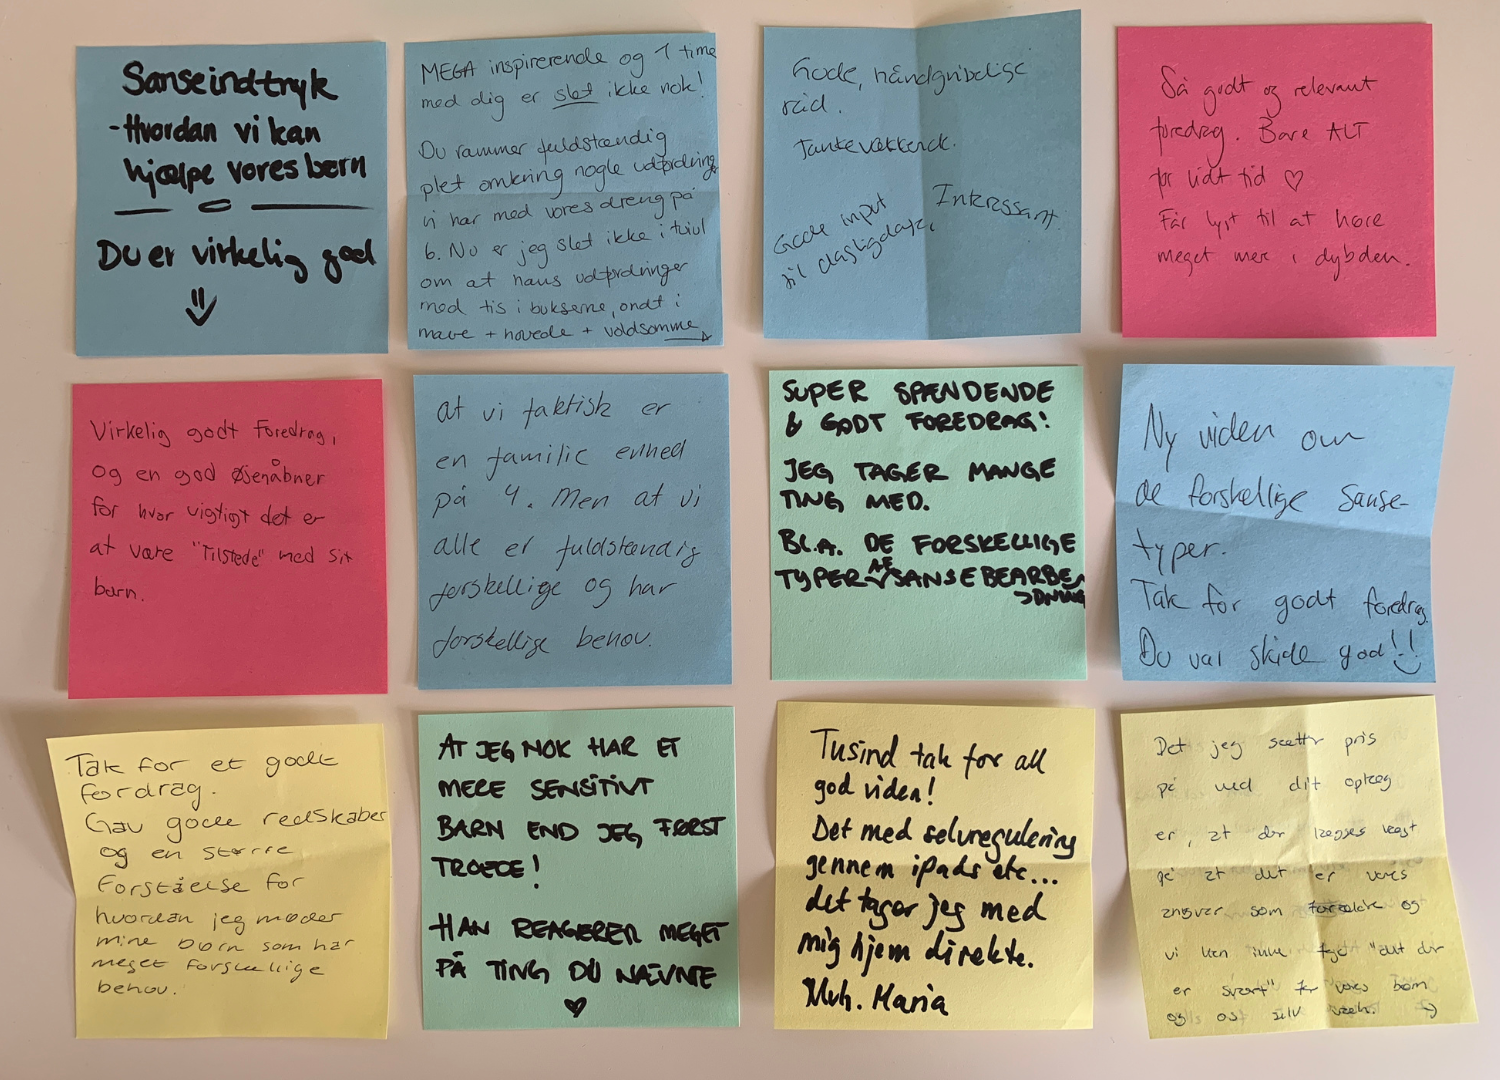 Sanseindtryk
- Hvordan vi kan
hjælpe vores børn
Du er virkelig god
MEGA inspirerende og 1 time
med dig er slet ikke nok!
Du rammer fuldstændig
plet omkring nogle udfordringer
vi har med vores dreng på
6. Nu er jeg slet ikke i tvivl
om at hans udfordringer
med tis i bukserne, ondt i
mave + hovede + voldsomme
Gode, håndgribelige
råd.
Tankevækkende.
Interessant
Gode input
til dagligdagen
Så godt og relevant
foredrag. Bare ALT
for lidt tid ♡
Får lyst til at høre
meget mer i dybden.
Virkelig godt Foredrag,
og en god Øjenåbner
for hvor vigtigt det er
at være "Tilstede" med sit
barn.
at vi faktisk er
en familie enhed
på 4. Men at vi
alle er fuldstændig
forskellige og har
forskellige behov.
SUPER SPÆNDENDE
& GODT FOREDRAG!
JEG TAGER MANGE
TING MED.
BL.A. DE FORSKELLIGE
TYPER AF SANSEBEARBEJDNING
Ny viden om
de forskellige sanse-
typer.
Tak for godt foredrag
Du var skide god!!
Tak for et godt
fordrag.
Gav gode redskaber
og en større
forståelse for
hvordan jeg møder
mine børn som har
meget forskellige
behov.
AT JEG NOK HAR ET
MERE SENSITIVT
BARN END JEG FØRST
TROEDE!
HAN REAGERER MEGET
PÅ TING DU NÆVNTE
♡
Tusind tak for all
god viden!
Det med selvregulering
gennem iPads etc...
det tager jeg med
mig hjem direkte.
Mvh. Maria
Det jeg sætter pris
på ved dit oplæg
er, at der lægges vægt
på at det er vores
ansvar som forældre og
vi kan "det der
er svært" for vores børn
og os selv